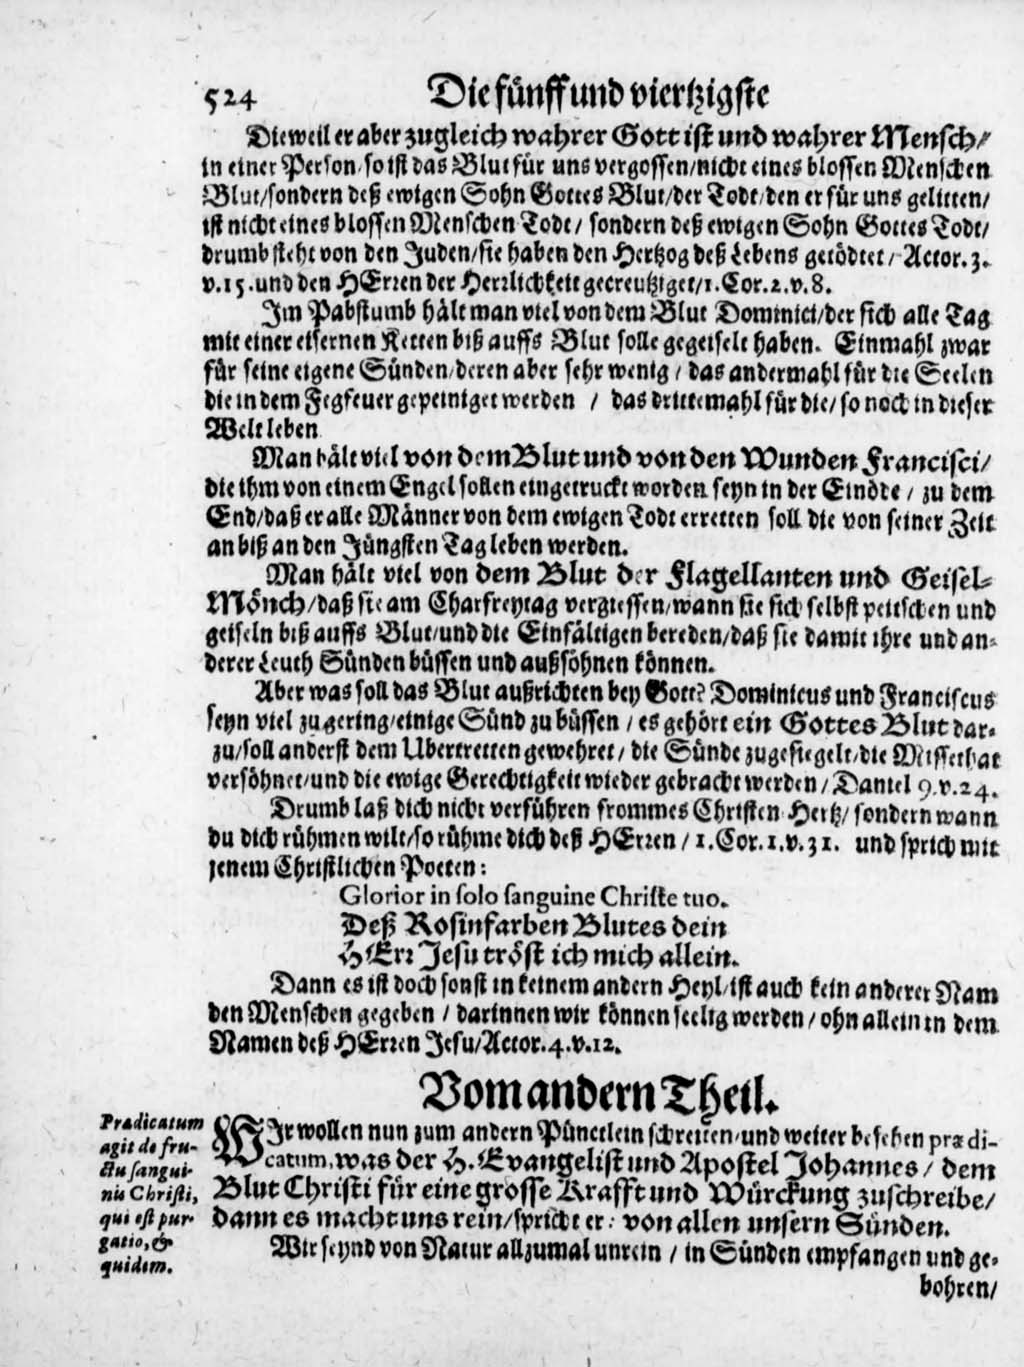 524 Die fünff und viertzigste
Dieweil er aber zugleich wahrer Gott ist und wahrer Mensch/
in einer Person/so ist das Blut für uns vergossen/nicht eines blossen Menschen
Blut/sondern deß ewigen Sohn Gottes Blut/der Todt/den er für uns gelitten/
ist nicht eines blossen Menschen Todt/ sondern deß ewigen Sohn Gottes Todt/
drumb steht von den Juden/sie haben den Hertzog deß Lebens getödtet/ Actor. 3.
v.15. und den HErren der Herrlichkeit gecreutziget/1. Cor. 2. v. 8.
Im Pabstumb hält man viel von dem Blut Dominici/der sich alle Tag
mit einer eisernen Ketten biß auffs Blut solle gegeiselt haben. Einmahl zwar
für seine eigene Sünden/deren aber sehr wenig / das andermahl für die Seelen
die in dem Fegfeuer gepeiniget werden / das drittemahl für die/ so noch in dieser
Welt leben
Man hält viel von dem Blut und von den Wunden Francisci/
die ihm von einem Engel sollen eingetruckt worden seyn in der Einöde / zu dem
End/daß er alle Männer von dem ewigen Todt erretten soll die von seiner Zeit
an biß an den Jüngsten Tag leben werden.
Man hält viel von dem Blut der Flagellanten und Geisel-
Mönch/daß sie am Charfreytag vergiessen/wann sie sich selbst peitschen und
geiseln biß auffs Blut/und die Einfältigen bereden/daß sie damit ihre und an-
derer Leuth Sünden büssen und außsöhnen können.
Aber was soll das Blut außrichten bey Gott? Dominicus und Franciscus
seyn viel zu gering/einige Sünd zu büssen / es gehört ein Gottes Blut dar-
zu/soll anderst dem Ubertretten gewehret/ die Sünde zugesiegelt/die Missethat
versöhnet/und die ewige Gerechtigkeit wieder gebracht werden/ Daniel 9. v. 24.
Drumb laß dich nicht verführen frommes Christen Hertz/ sondern wann
du dich rühmen wilt/so rühme dich deß HErren / 1. Cor. 1. v. 31. und sprich mit
jenem Christlichen Poeten:
Glorior in solo sanguine Christe tuo.
Deß Rosinfarben Blutes dein
HErr Jesu tröst ich mich allein.
Dann es ist doch sonst in keinem andern Heyl/ist auch kein anderer Nam
den Menschen gegeben / darinnen wir können seelig werden/ ohn allein in dem
Namen deß HErren Jesu/Actor. 4. v. 12.
Vom andern Theil.
Prædicatum
agit de fru-
ctu sangui-
nis Christi,
qui est pur-
gatio, &
quidem.
WIr wollen nun zum andern Pünctlein schreiten/und weiter besehen prædi-
catum, was der H. Evangelist und Apostel Johannes / dem
Blut Christi für eine grosse Krafft und Würckung zuschreibe/
dann es macht uns rein/spricht er: von allen unsern Sünden.
Wir seynd von Natur allzumal unrein / in Sünden empfangen und ge-
bohren/